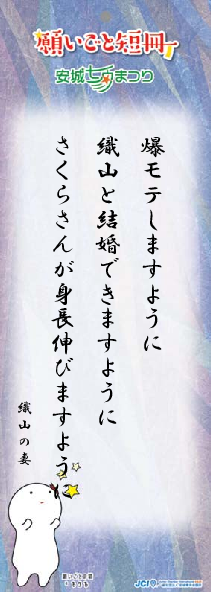 願いごと短冊
安城七夕まつり
爆モテしますように
織山と結婚できますように
さくらさんが身長伸びますように
織山の妻
願いごと短冊
JCI